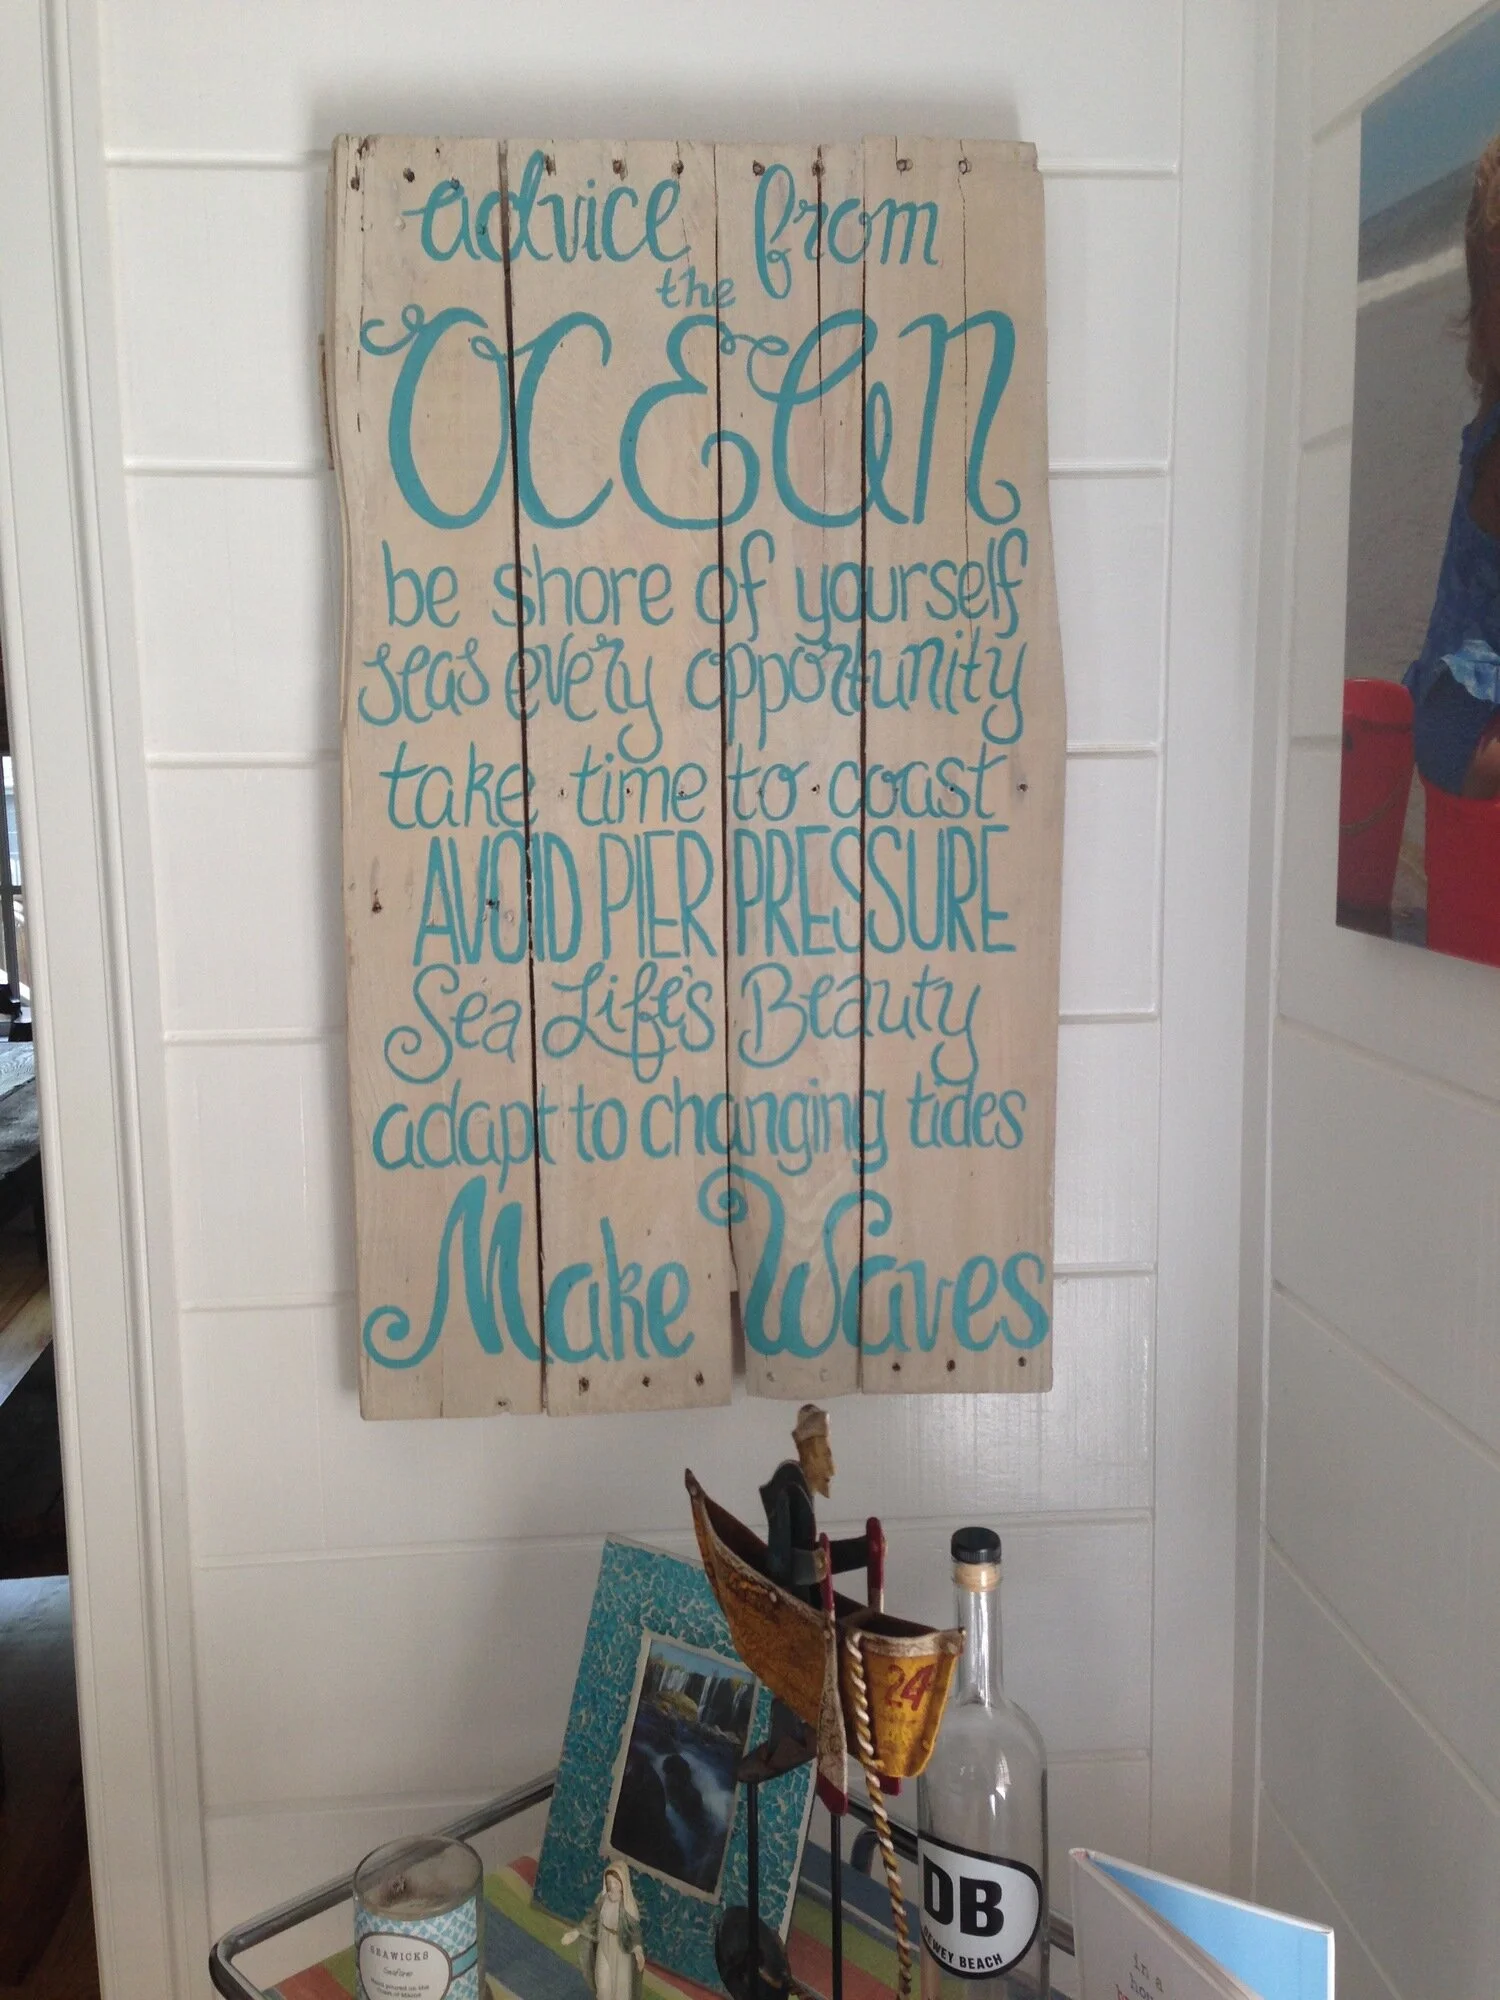 advice from
the
OCEAN
be shore of yourself
seas every opportunity
take time to coast
AVOID PIER PRESSURE
Sea Life's Beauty
adapt to changing tides
Make Waves
24
DB
DEWEY BEACH
SEAWICKS
in a